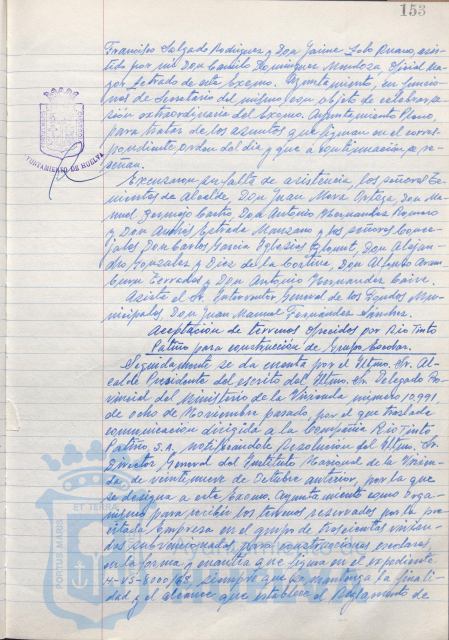 153
Francisco Salgado Rodríguez y Don Jaime Lobo Ruano, asis-
tido por mi Don Camilo Domínguez Mendoza, Oficial Ma-
yor Letrado de este Excmo. Ayuntamiento, en funcio-
nes de Secretario del mismo, con objeto de celebrar se-
sión extraordinaria del Excmo. Ayuntamiento Pleno,
para tratar de los asuntos que figuran en el corres-
pondiente orden del día y que a continuación se re-
señan.
Excusaron su falta de asistencia, los señores Te-
nientes de Alcalde, Don Juan Mora Ortega, Don Ma-
nuel Bermejo Castro, Don Antonio Hernández Romero
y Don Andrés Estrada Manzano y los señores Conce-
jales, Don Carlos García Yglesias Don Alejan-
dro González y Díez de la Cortina, Don Alfonso Aram-
buru Terrades y Don Antonio Fernández
Asiste el Sr. Interventor General de los Fondos Mu-
nicipales Don Juan Manuel Fernández Sánchez.
Aceptación de terrenos ofrecidos por Rio Tinto
Patiño para construcción de Grupo Escolar.
Seguidamente se da cuenta por el Iltmo. Sr. Al-
calde Presidente del escrito del Iltmo. Sr. Delegado Pro-
vincial del Ministerio de la Vivienda número 10.991
de ocho de Noviembre pasado, por el que traslada
comunicación dirigida a la Compañía Rio Tinto
Patiño, S.A. notificándole Resolución del Iltmo. Sr.
Director General del Instituto Nacional de la Vivien-
da, de veintinueve de Octubre anterior, por la que
se designa a este Excmo. Ayuntamiento como Orga-
nismo para recibir los terrenos reservados por la pre-
citada Empresa en el grupo de trescientas vivien-
das subvencionadas, para construcciones escolares
en la forma y cuantía que figura en el expediente
H-VS-8000/68, siempre que se mantenga la finali-
dad y el alcance que establece el Reglamento de
AYUNTAMIENTO DE HUELVA
PORTUS MARIS
ET TERRÆ